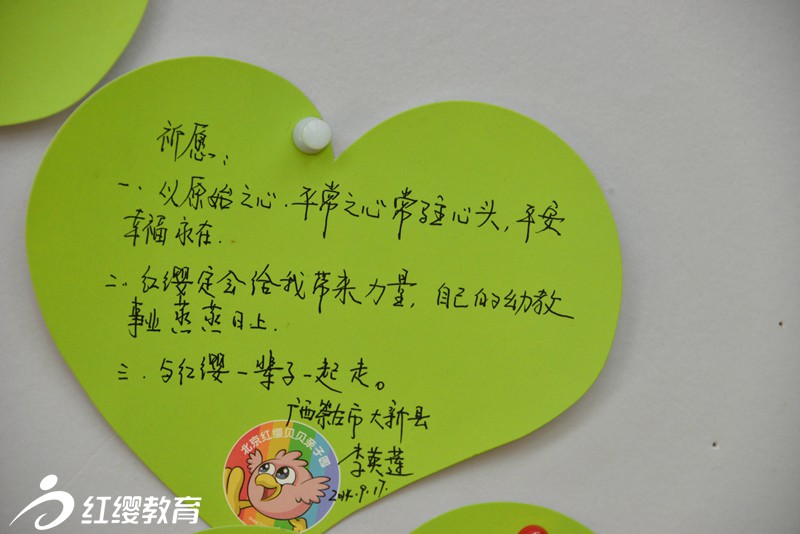 祈愿:
一.以原始之心.平常之心常驻心头,平安
幸福永在.
二.红缨定会给我带来力量,自己的幼教
事业蒸蒸日上.
三.与红缨一辈子一起走。
广西崇左市大新县
李英莲
2014.9.17.
北京红缨贝贝亲子园
红缨教育